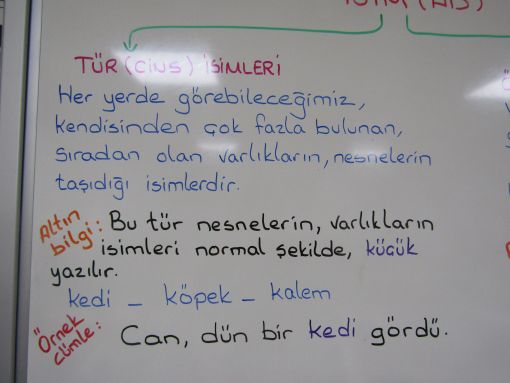 TÜR (CİNS) İSİMLERİ
Her yerde görebileceğimiz,
kendisinden çok fazla bulunan,
sıradan olan varlıkların, nesnelerin
taşıdığı isimlerdir.
Altın bilgi: Bu tür nesnelerin, varlıkların
isimleri normal şekilde, küçük
yazılır.
kedi – köpek – kalem
Örnek cümle: Can, dün bir kedi gördü.